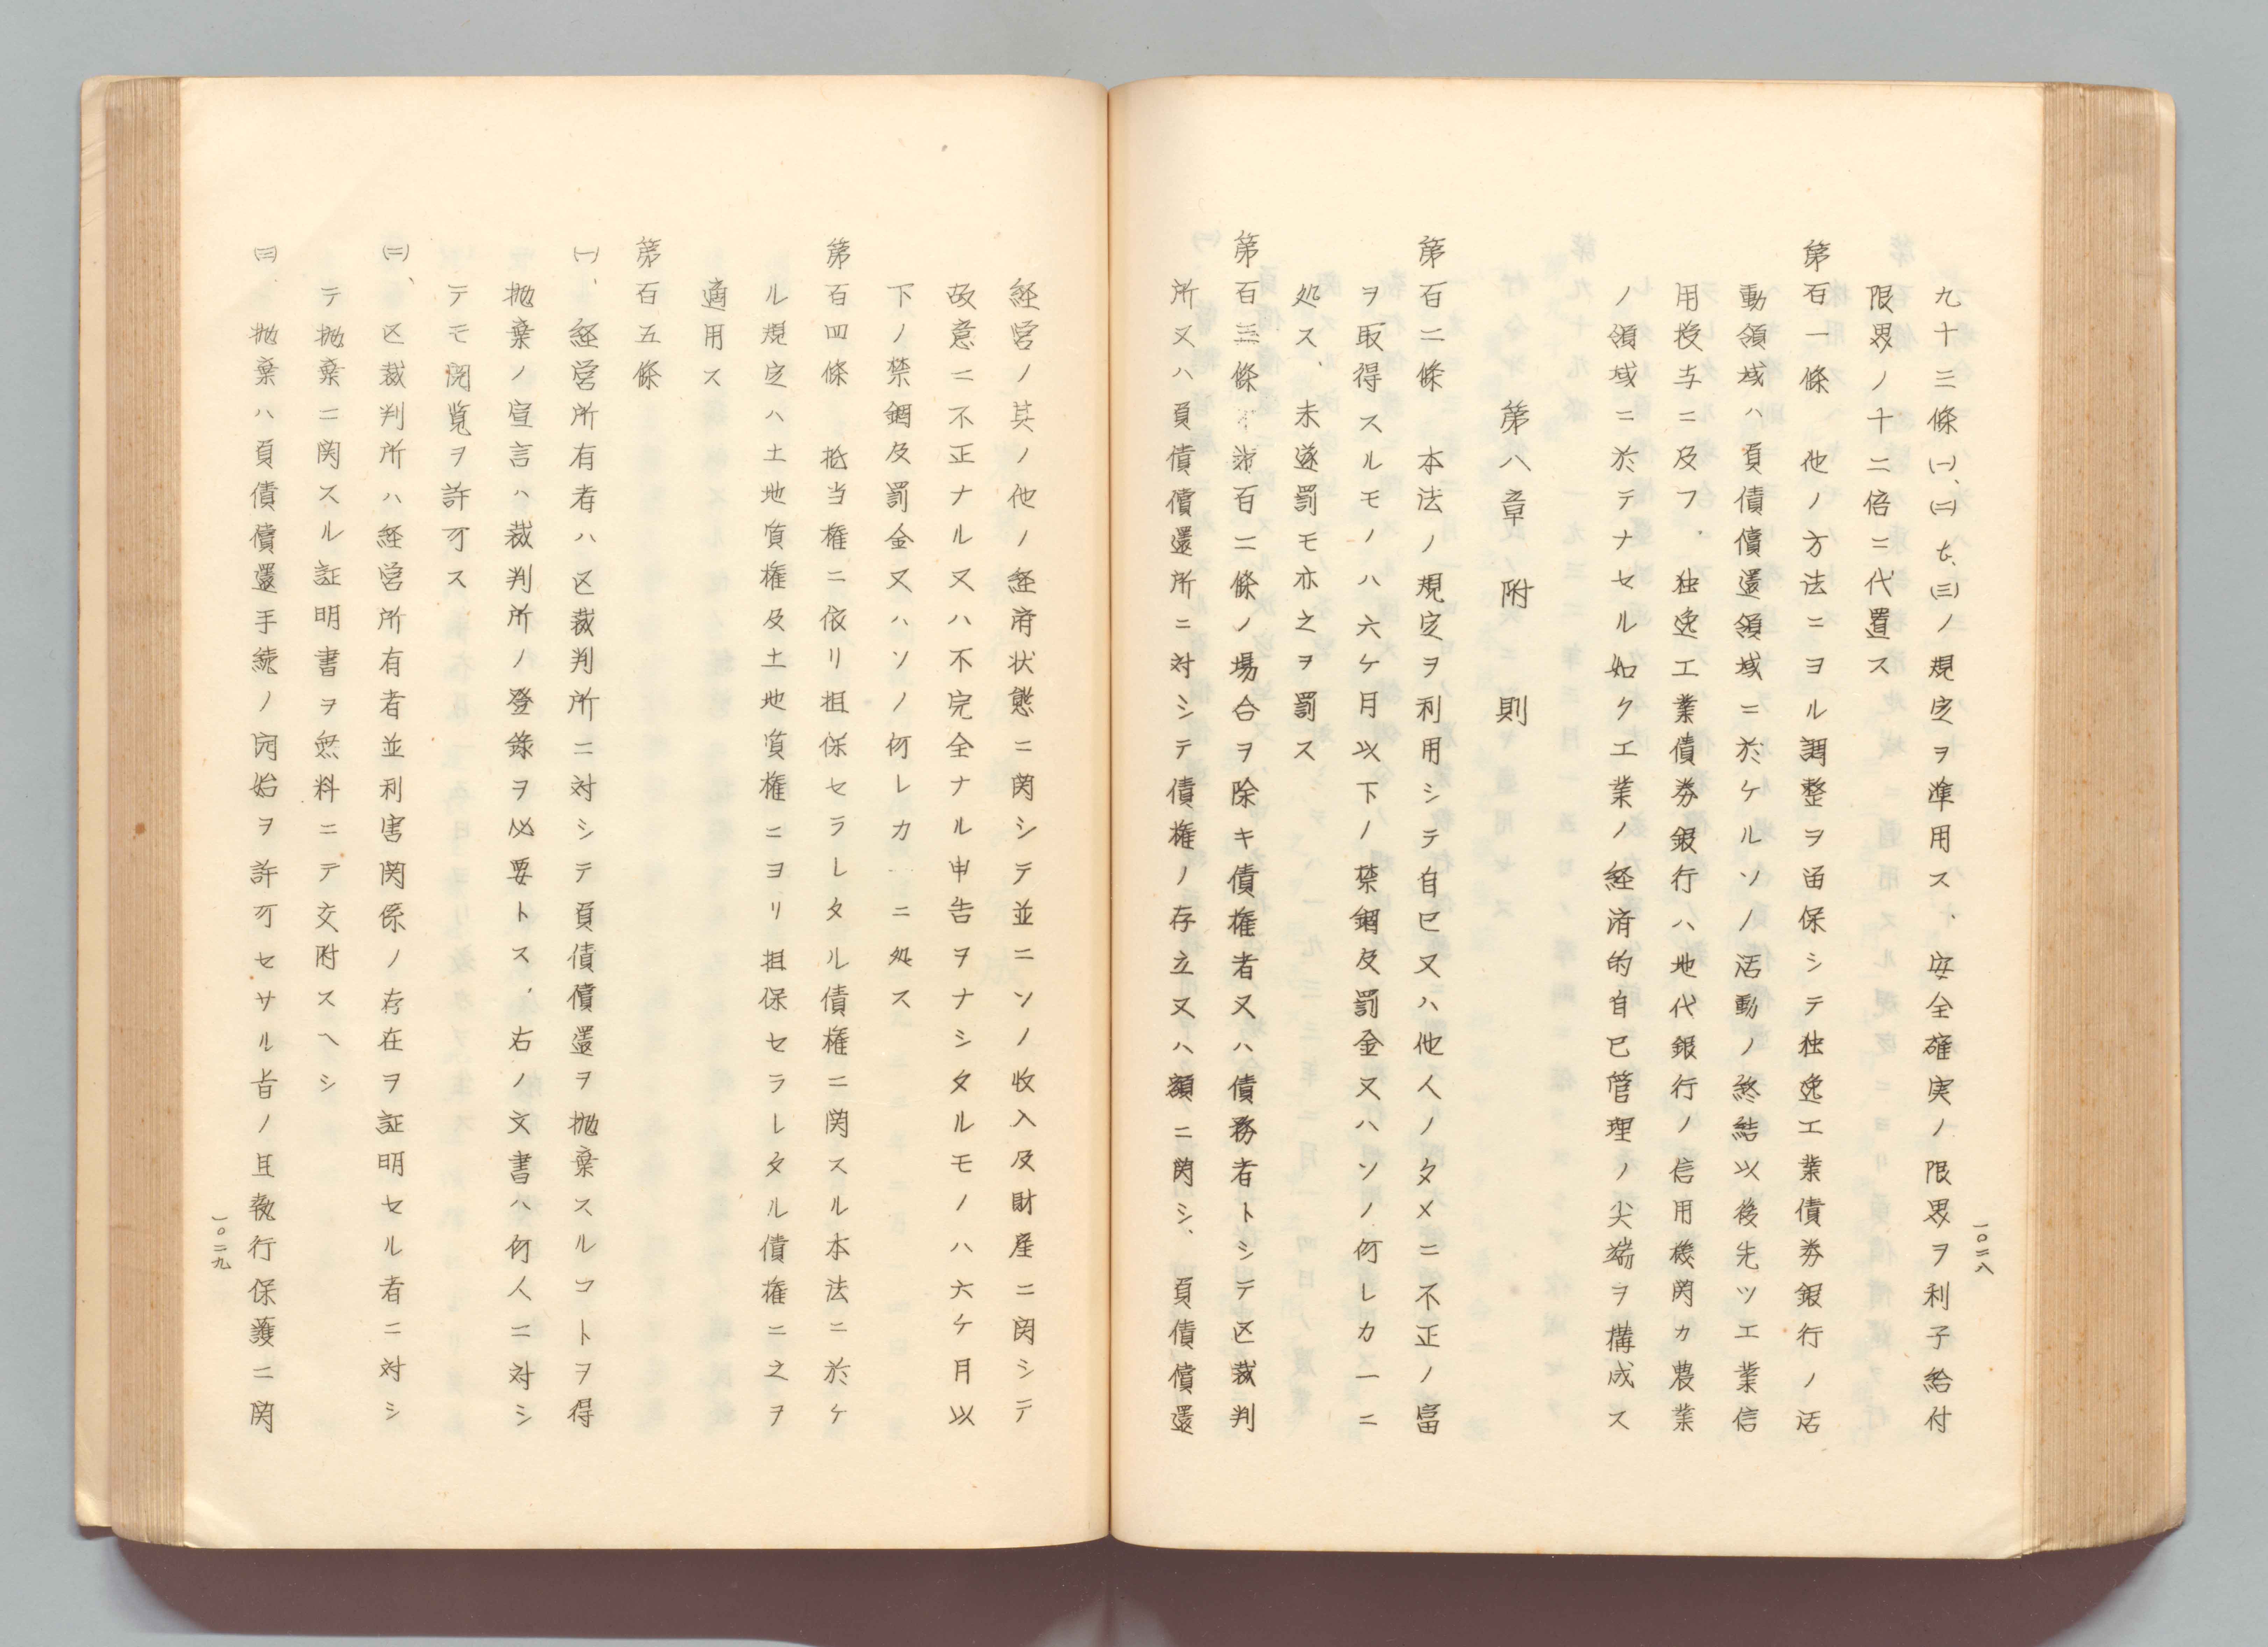 九十三條㈠、㈡七、㈢ノ規定ヲ準用ス、安全確実ノ限界ヲ利子給付
限界ノ十二倍ニ代置ス
第百一條　他ノ方法ニヨル調整ヲ留保シテ独逸工業債券銀行ノ活
動領域ハ負債償還領域ニ於ケルソノ活動ノ終結以後先ツ工業信
用授与ニ及フ、独逸工業債券銀行ハ地代銀行ノ信用機関カ農業
ノ領域ニ於テナセル如ク工業ノ経済的自己管理ノ尖端ヲ構成ス
第八章　附則
第百二條　本法ノ規定ヲ利用シテ自己又ハ他人ノタメニ不正ノ富
ヲ取得スルモノハ六ケ月以下ノ禁錮及罰金又ハソノ何レカ一ニ
処ス、未遂罰モ亦之ヲ罰ス
第百三條　第百二條ノ場合ヲ除キ債権者又ハ債務者トシテ区裁判
所又ハ負債償還所ニ対シテ債権ノ存立又ハ額ニ関シ、負債償還
一〇二八
経営ノ其ノ他ノ経済状態ニ関シテ並ニソノ收入及財産ニ関シテ
故意ニ不正ナル又ハ不完全ナル申告ヲナシタルモノハ六ケ月以
下ノ禁錮及罰金又ハソノ何レカ一ニ処ス
第百四條　抵当権ニ依リ担保セラレタル債権ニ関スル本法ニ於ケ
ル規定ハ土地質権及土地質権ニヨリ担保セラレタル債権ニ之ヲ
適用ス
第百五條
㈠、経営所有者ハ区裁判所ニ対シテ負債償還ヲ抛棄スルコトヲ得
抛棄ノ宣言ハ裁判所ノ登録ヲ必要トス、右ノ文書ハ何人ニ対シ
テモ閲覧ヲ許可ス
㈡、区裁判所ハ経営所有者並利害関係ノ存在ヲ証明セル者ニ対シ
テ抛棄ニ関スル証明書ヲ無料ニテ交附スヘシ
㈢、抛棄ハ負債償還手続ノ開始ヲ許可セサル旨ノ且執行保護ニ関
一〇二九